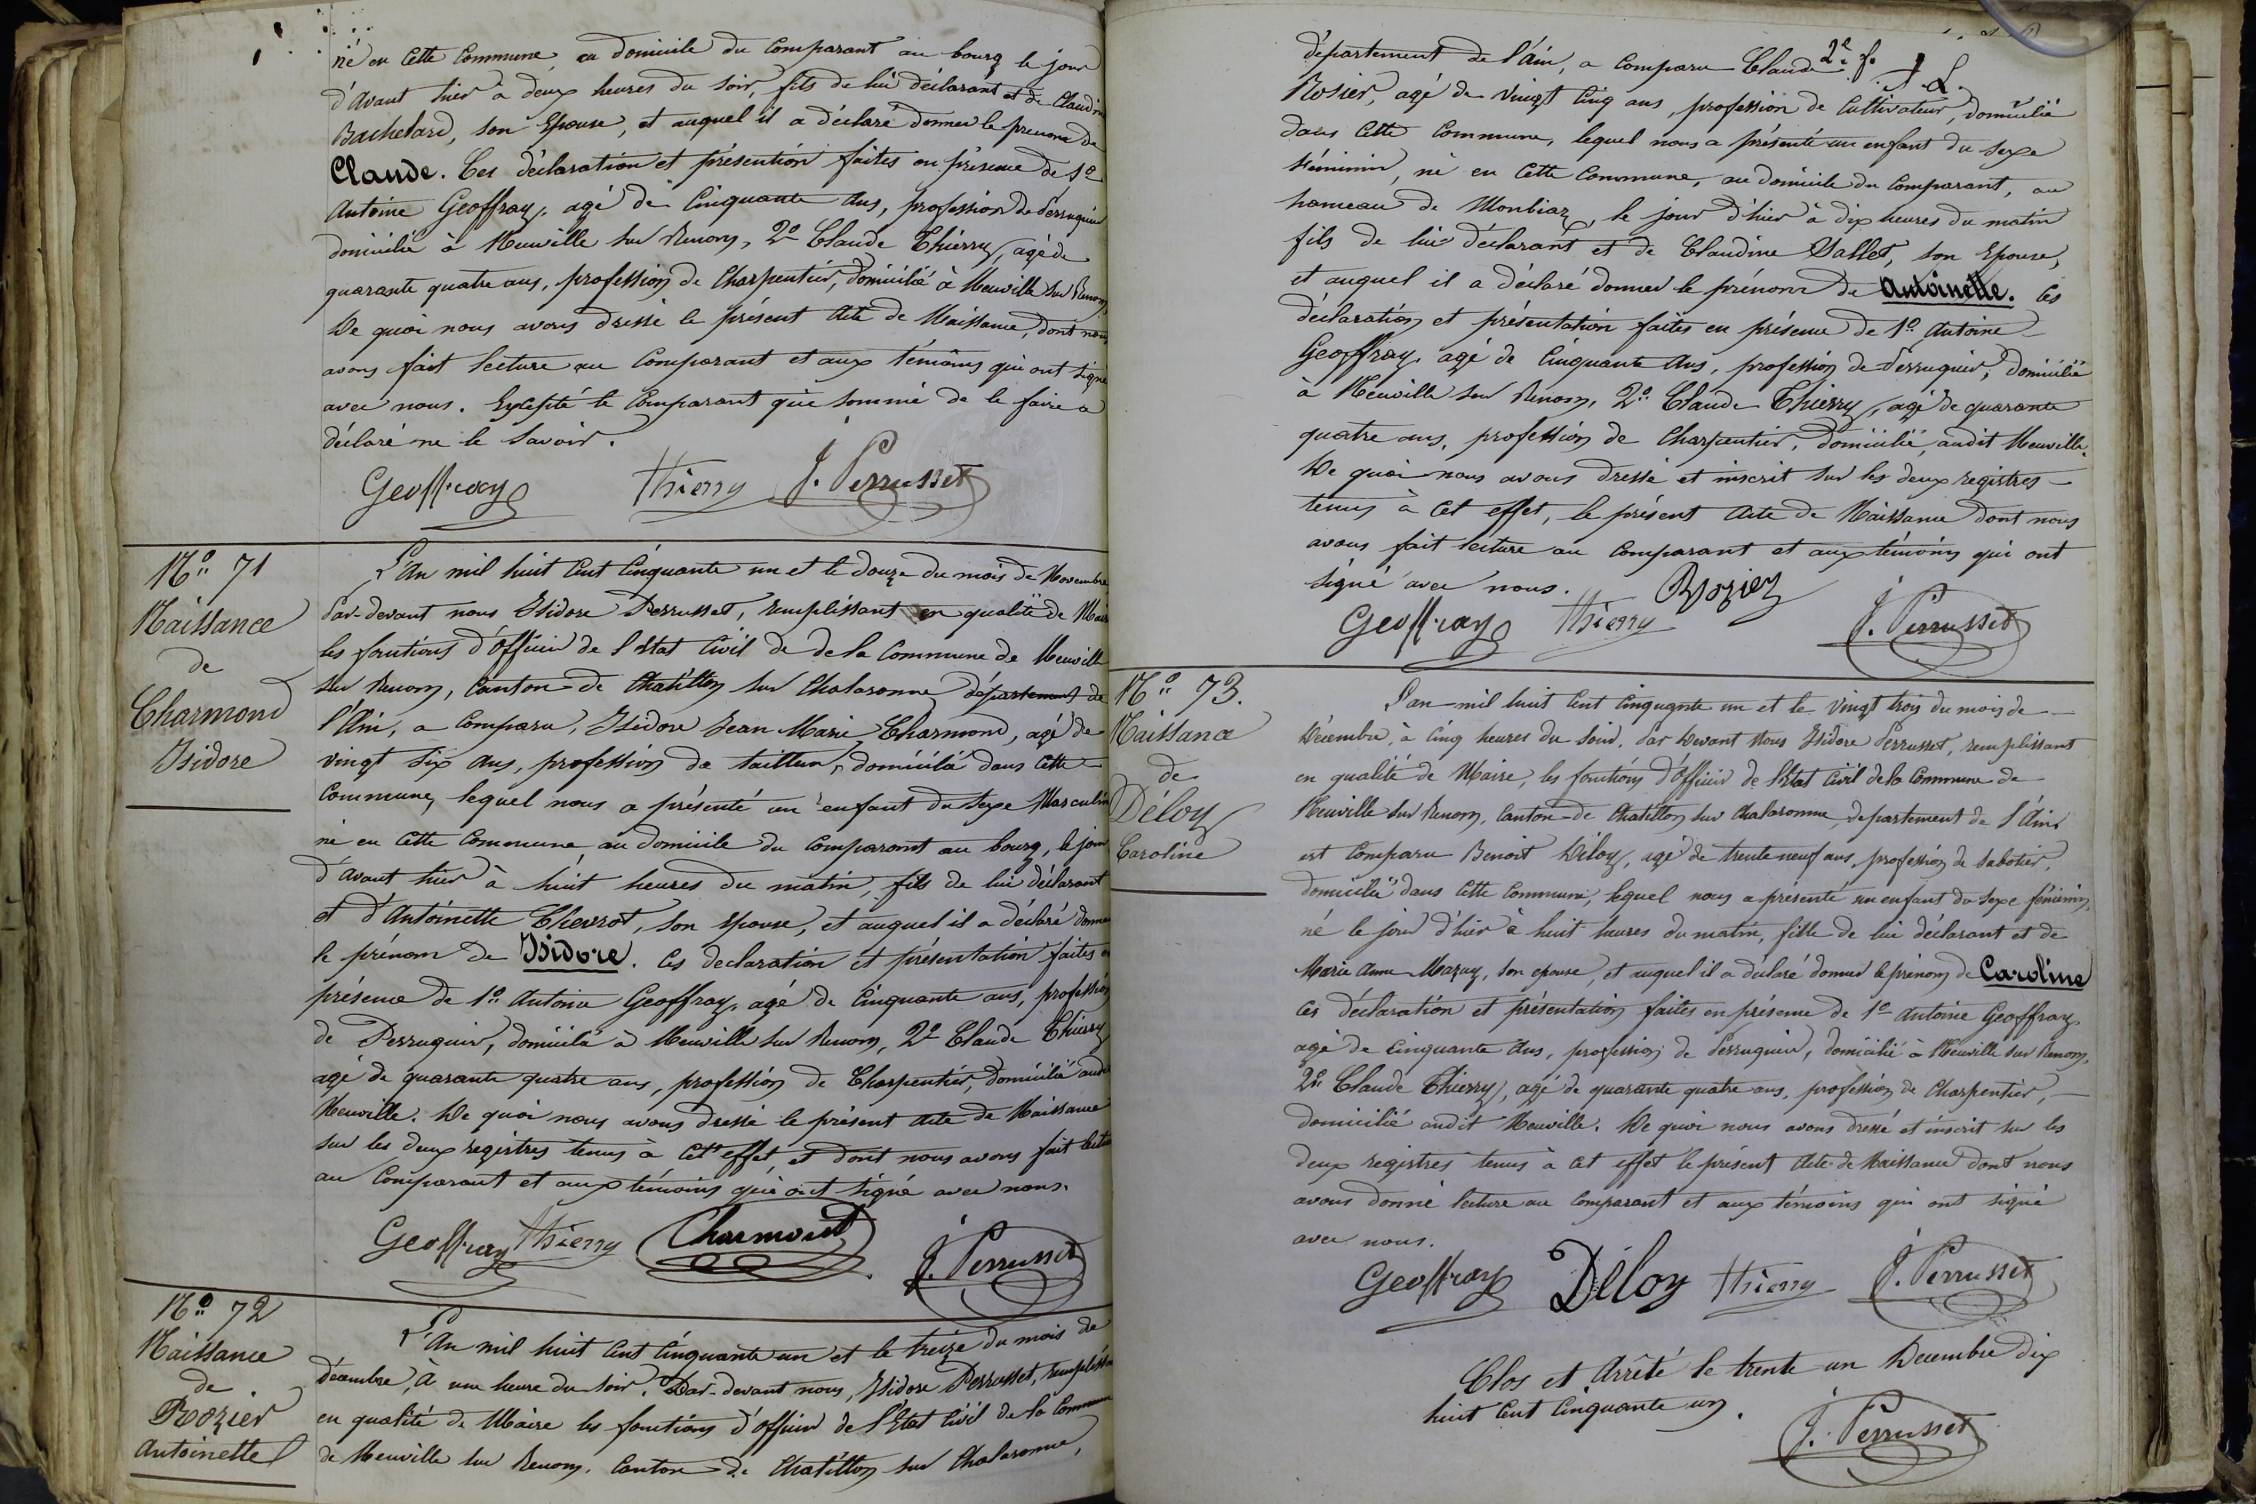 né en cette Commune, au domicile du Comparant au bourg le jour
d'avant hier à deux heures du soir, fils de lui déclarant et de Claudine
Bachelard, son Epouse, et auquel il a déclaré donner le prenom de
Claude. Ces déclaration et présention faites en présence de 1º
Antoine Geoffray, agé de Cinquante Ans, profession de Perruquier
domicilié à Neuville sur Renom, 2º Claude Thierry, agé de
quarante quatre ans, profession de Charpentier, domicilié à Neuville sur Renom
De quoi nous avons dressé le présent Acte de Naissance, dont nous
avons fait lecture au Comparant et aux témoins qui ont signé
avec nous. Excepté le Comparant qui sommé de le faire a
déclaré ne le savoir.
Geoffray Thierry J. Perrusset
Nº 71
Naissance
de
Charmond
Isidore
L'An mil huit Cent Cinquante un et le douze du mois de Novembre
Par-devant nous Isidore Perrusset, remplissant en qualité de Maire
les fonctions d'Officier de l'Etat Civil de de la Commune de Neuville
sur Renom, Canton de Chatillon sur Chalaronne département de
l'Ain, a Comparu, Isidore Jean Marie Charmond, agé de
vingt six Ans, profession de tailleur, domicilié dans cette
Commune, lequel nous a présenté un enfant du sexe Masculin
né en cette Commune au domicile du Comparant au bourg, le jour
d'avant hier à huit heures du matin, fils de lui déclarant
et d'Antoinette Chevrot, son Epouse, et auquel il a déclaré donner
le prénom de Isidore. Ces declaration et présentation faites en
présence de 1º Antoine Geoffray, agé de Cinquante ans, profession
de Perruquier, domicilié à Neuville sur Renom, 2º Claude Thierry
agé de quarante quatre ans, profession de Charpentier, domicilié audit
Neuville. De quoi nous avons dressé le présent Acte de Naissance
sur les deux registres tenus à Cet effet, et dont nous avons fait lecture
au Comparant et aux témoins qui ont signé avec nous.
Geoffray Thierry Charmond J. Perrusset
Nº 72
Naissance
de
Rozier
Antoinette
L'An mil huit Cent Cinquante un et le treize du mois de
décembre, à une heure du soir. Par-devant nous, Isidore Perrusset, remplissant
en qualité de Maire les fonctions d'Officier de l'Etat Civil de la Commune
de Neuville sur Renom, Canton de Chatillon sur Chalaronne,
département de l'Ain, a Comparu Claude 2e. f.
Rosier, agé de Vingt Cinq ans, profession de Cultivateur, domicilié
dans cette Commune, lequel nous a présenté un enfant du sexe
féminin, né en Cette Commune, au domicile du Comparant, au
hameau de Monbiaz, le jour d'hier à dix heures du matin
fils de lui déclarant et de Claudine Sallet, son Epouse,
et auquel il a déclaré donner le prénom de Antoinette. Ces
déclaration et présentation faites en présence de 1º Antoine
Geoffray, agé de Cinquante Ans, profession de Perruquier, domicilié
à Neuville sur Renom, 2º Claude Thierry, agé de quarante
quatre ans, profession de Charpentier, domicilié audit Neuville.
De quoi nous avons dressé et inscrit sur les deux registres
tenus à Cet effet, le présent Acte de Naissance dont nous
avons fait lecture au Comparant et aux témoins qui ont
signé avec nous. Rozier
Geoffray Thierry J. Perrusset
Nº 73.
Naissance
de
Déloy
Caroline
L'an mil huit Cent Cinquante un et le Vingt trois du mois de
Décembre, à Cinq heures du soir. Par Devant Nous Isidore Perrusset, remplissant
en qualité de Maire, les fonctions d'Officier de l'Etat Civil de la Commune de
Neuville sur Renom, Canton de Chatillon sur Chalaronne, departement de l'Ain
est Comparu Benoit Déloy, agé de trente neuf ans, profession de Sabotier,
domicilié dans Cette Commune, lequel nous a présenté un enfant du sexe féminin,
né le jour d'hier à huit heures du matin, fille de lui déclarant et de
Marie Anne Mazuy, son epouse, et auquel il a déclaré donner le prénom de Caroline
Ces déclaration et présentation faites en présence de 1º Antoine Geoffray
agé de Cinquante Ans, profession de Perruquier, domicilié à Neuville sur Renom,
2º Claude Thierry, agé de quarante quatre ans, profession de Charpentier,
domicilié audit Neuville. De quoi nous avons dressé et inscrit sur les
deux registres tenus à Cet effet le présent Acte de Naissance dont nous
avons donné lecture au Comparant et aux témoins qui ont signé
avec nous.
Geoffray Déloy Thierry J. Perrusset
Clos et Arrêté le trente un Decembre dix
huit Cent Cinquante un.
J. Perrusset